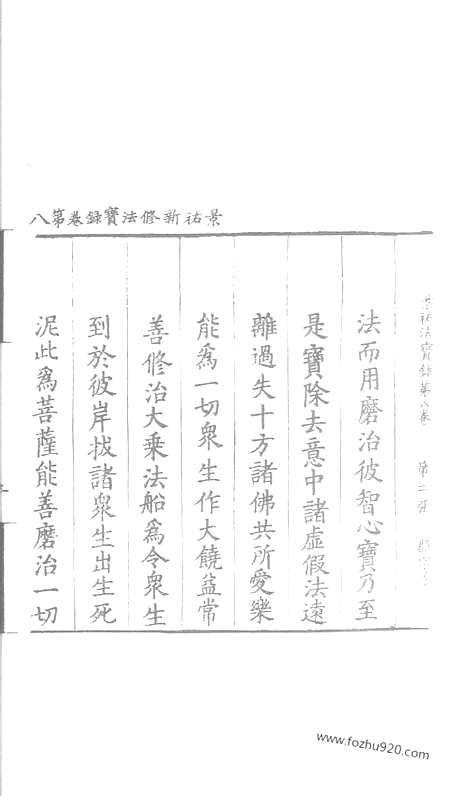 景祐新修法寶録卷第八
法而用磨治彼智心寶乃至
是寶除去意中諸虛假法遠
離過失十方諸佛共所愛樂
能爲一切衆生作大饒益常
善修治大乗法船爲令衆生
到於彼岸拔諸衆生出生死
泥此爲菩薩能善磨治一切
www.fozhu920.com